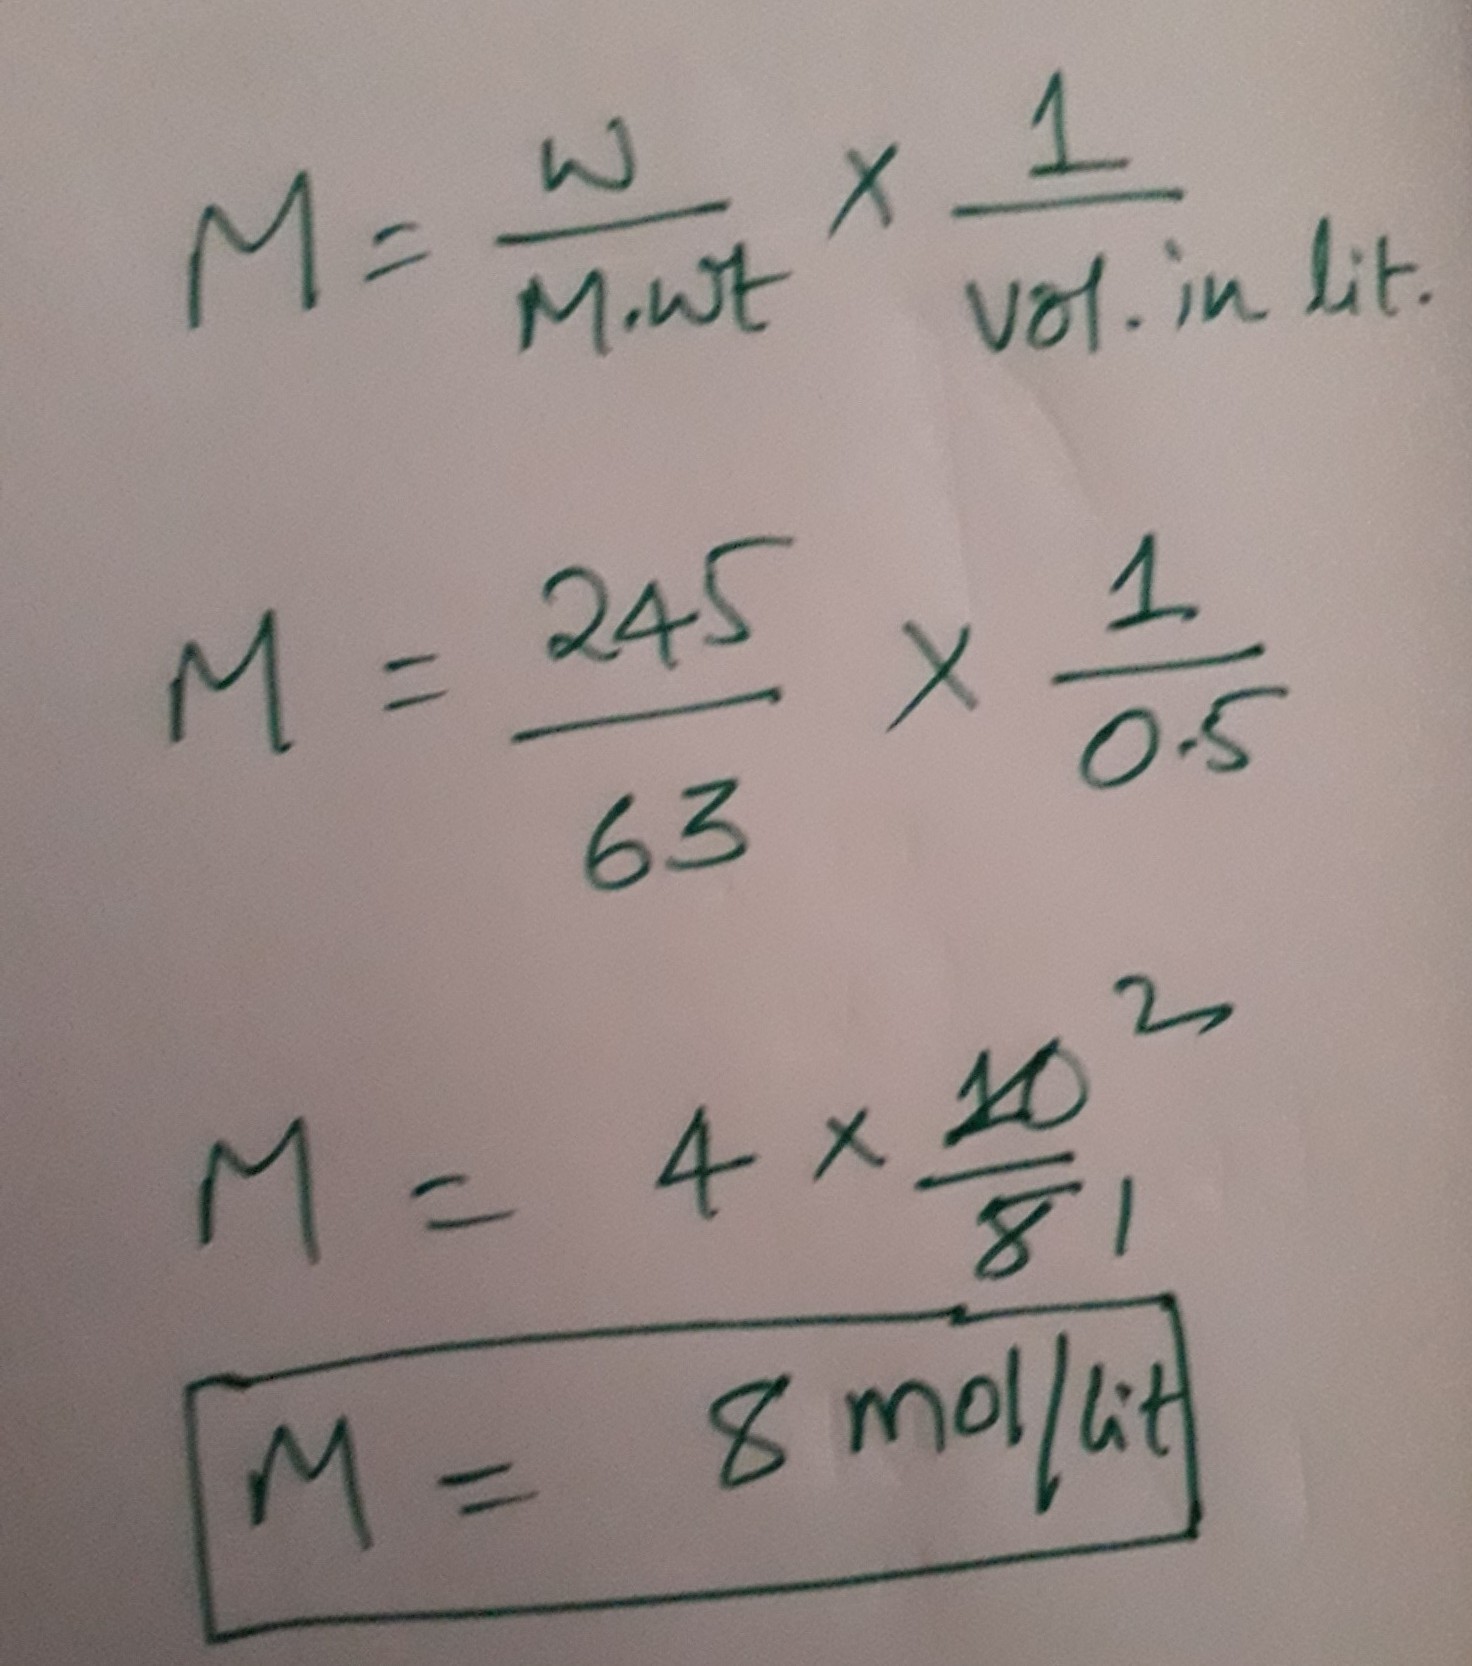 M = w/M.wt × 1/vol. in lit.
M = 245/63 × 1/0.5
M = 4 × 10/5 2 1
M = 8 mol/lit